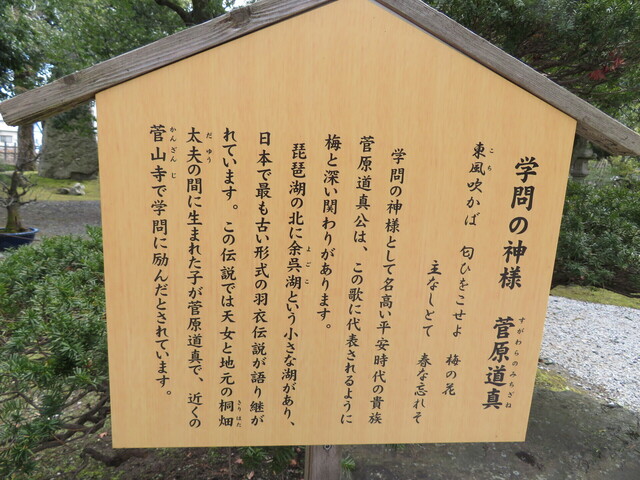 学問の神様 菅原道真
すがわらのみちざね
東風吹かば 匂ひをこせよ 梅の花
こち
主なしとて 春な忘れそ
学問の神様として名高い平安時代の貴族
菅原道真公は、この歌に代表されるように
梅と深い関わりがあります。
琵琶湖の北に余呉湖という小さな湖があり、
よごこ
日本で最も古い形式の羽衣伝説が語り継が
れています。この伝説では天女と地元の桐畑
きりはた
太夫の間に生まれた子が菅原道真で、近くの
だゆう
菅山寺で学問に励んだとされています。
かんざんじ